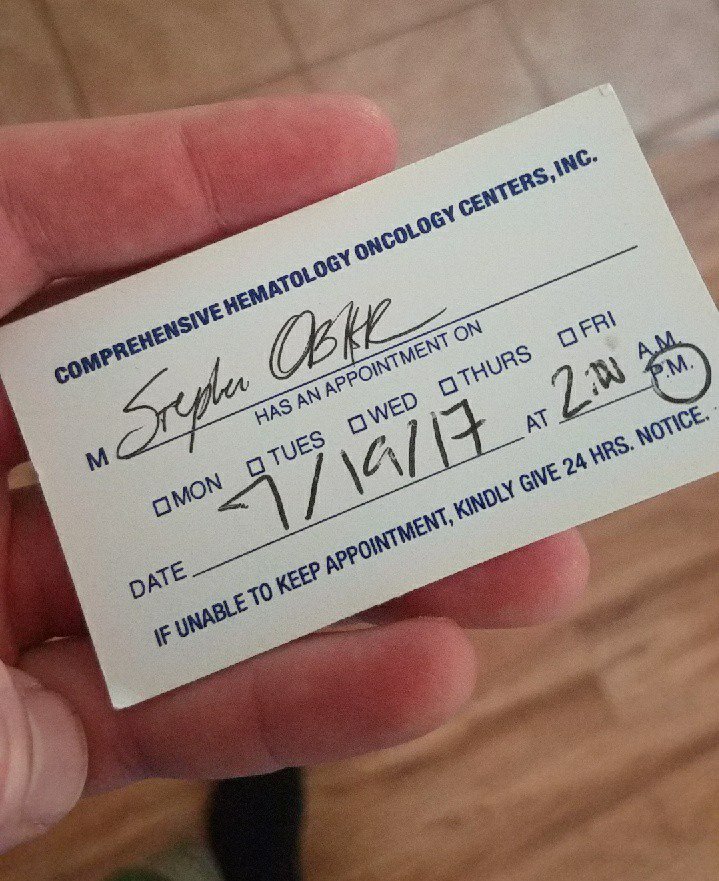 COMPREHENSIVE HEMATOLOGY ONCOLOGY CENTERS, INC.
M Stephen
HAS AN APPOINTMENT ON
MON TUES WED THURS FRI
DATE 7/19/17 AT 2:00 A.M. P.M.
IF UNABLE TO KEEP APPOINTMENT, KINDLY GIVE 24 HRS. NOTICE.